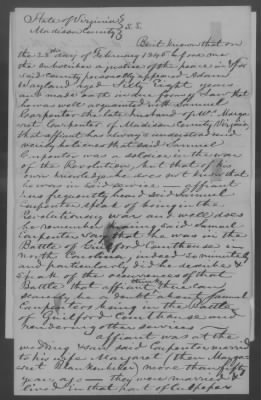 State of Virginia }
Madison County } S.S.
Be it known that on
the 28th day of February 1845 before me
the subscriber a justice of the peace in & for
said County personally appeared Adam
Wayland aged Sixty Eight years
and made oath in due form of Law that
he was well acquainted with Samuel
Carpenter the late husband of Mrs Marga
ret Carpenter of Madison County Virginia
that affiant has always understood and
verily believes that said Samuel
Carpenter was a soldier in the war
of the Revolution, but that of his
own knowledge he does not know that
he was in said service — affiant
has frequently heard said Samuel
Carpenter speak of being in the
Revolutionary war and well does
he remember hearing said Samuel
Carpenter say that he was in the
Battle of Guilford Courthouse in
North Carolina, indeed so minutely
and particularly did he describe &
speak of the occurrences of that
Battle that affiant thinks there can
scarcely be a doubt about Samuel
Carpenter having been in the Battle
of Guilford Courthouse and
rendering other services —
affiant was at the
wedding & saw said Carpenter married
to his wife Margaret (then Marga
ret Blankenbeker) more than fifty
years ago — they were married &
lived in that part of Culpeper